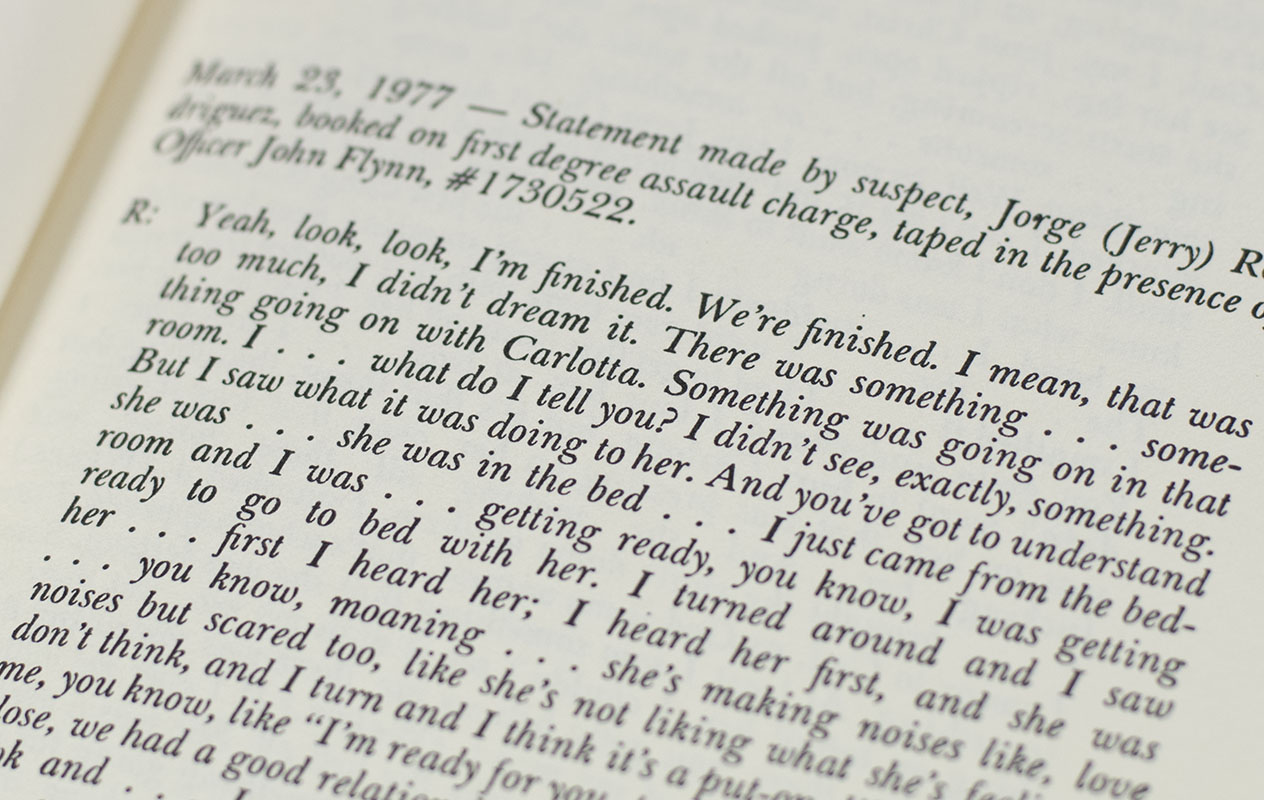 March 23, 1977 — Statement made by suspect, Jorge (Jerry) Ro
driguez, booked on first degree assault charge, taped in the presence of
Officer John Flynn, #1730522.
R: Yeah, look, look, I'm finished. We're finished. I mean, that was
too much, I didn't dream it. There was something . . . some-
thing going on with Carlotta. Something was going on in that
room. I . . . what do I tell you? I didn't see, exactly, something.
But I saw what it was doing to her. And you've got to understand
she was . . . she was in the bed . . . I just came from the bed-
room and I was . . . getting ready, you know, I was getting
ready to go to bed with her. I turned around and I saw
her . . . first I heard her; I heard her first, and she was
. . . you know, moaning . . . she's making noises like, love
noises but scared too, like she's not liking what she's feeli
don't think, and I turn and I think it's a put-on
me, you know, like "I'm ready for you
lose, we had a good relation
ok and . . . I